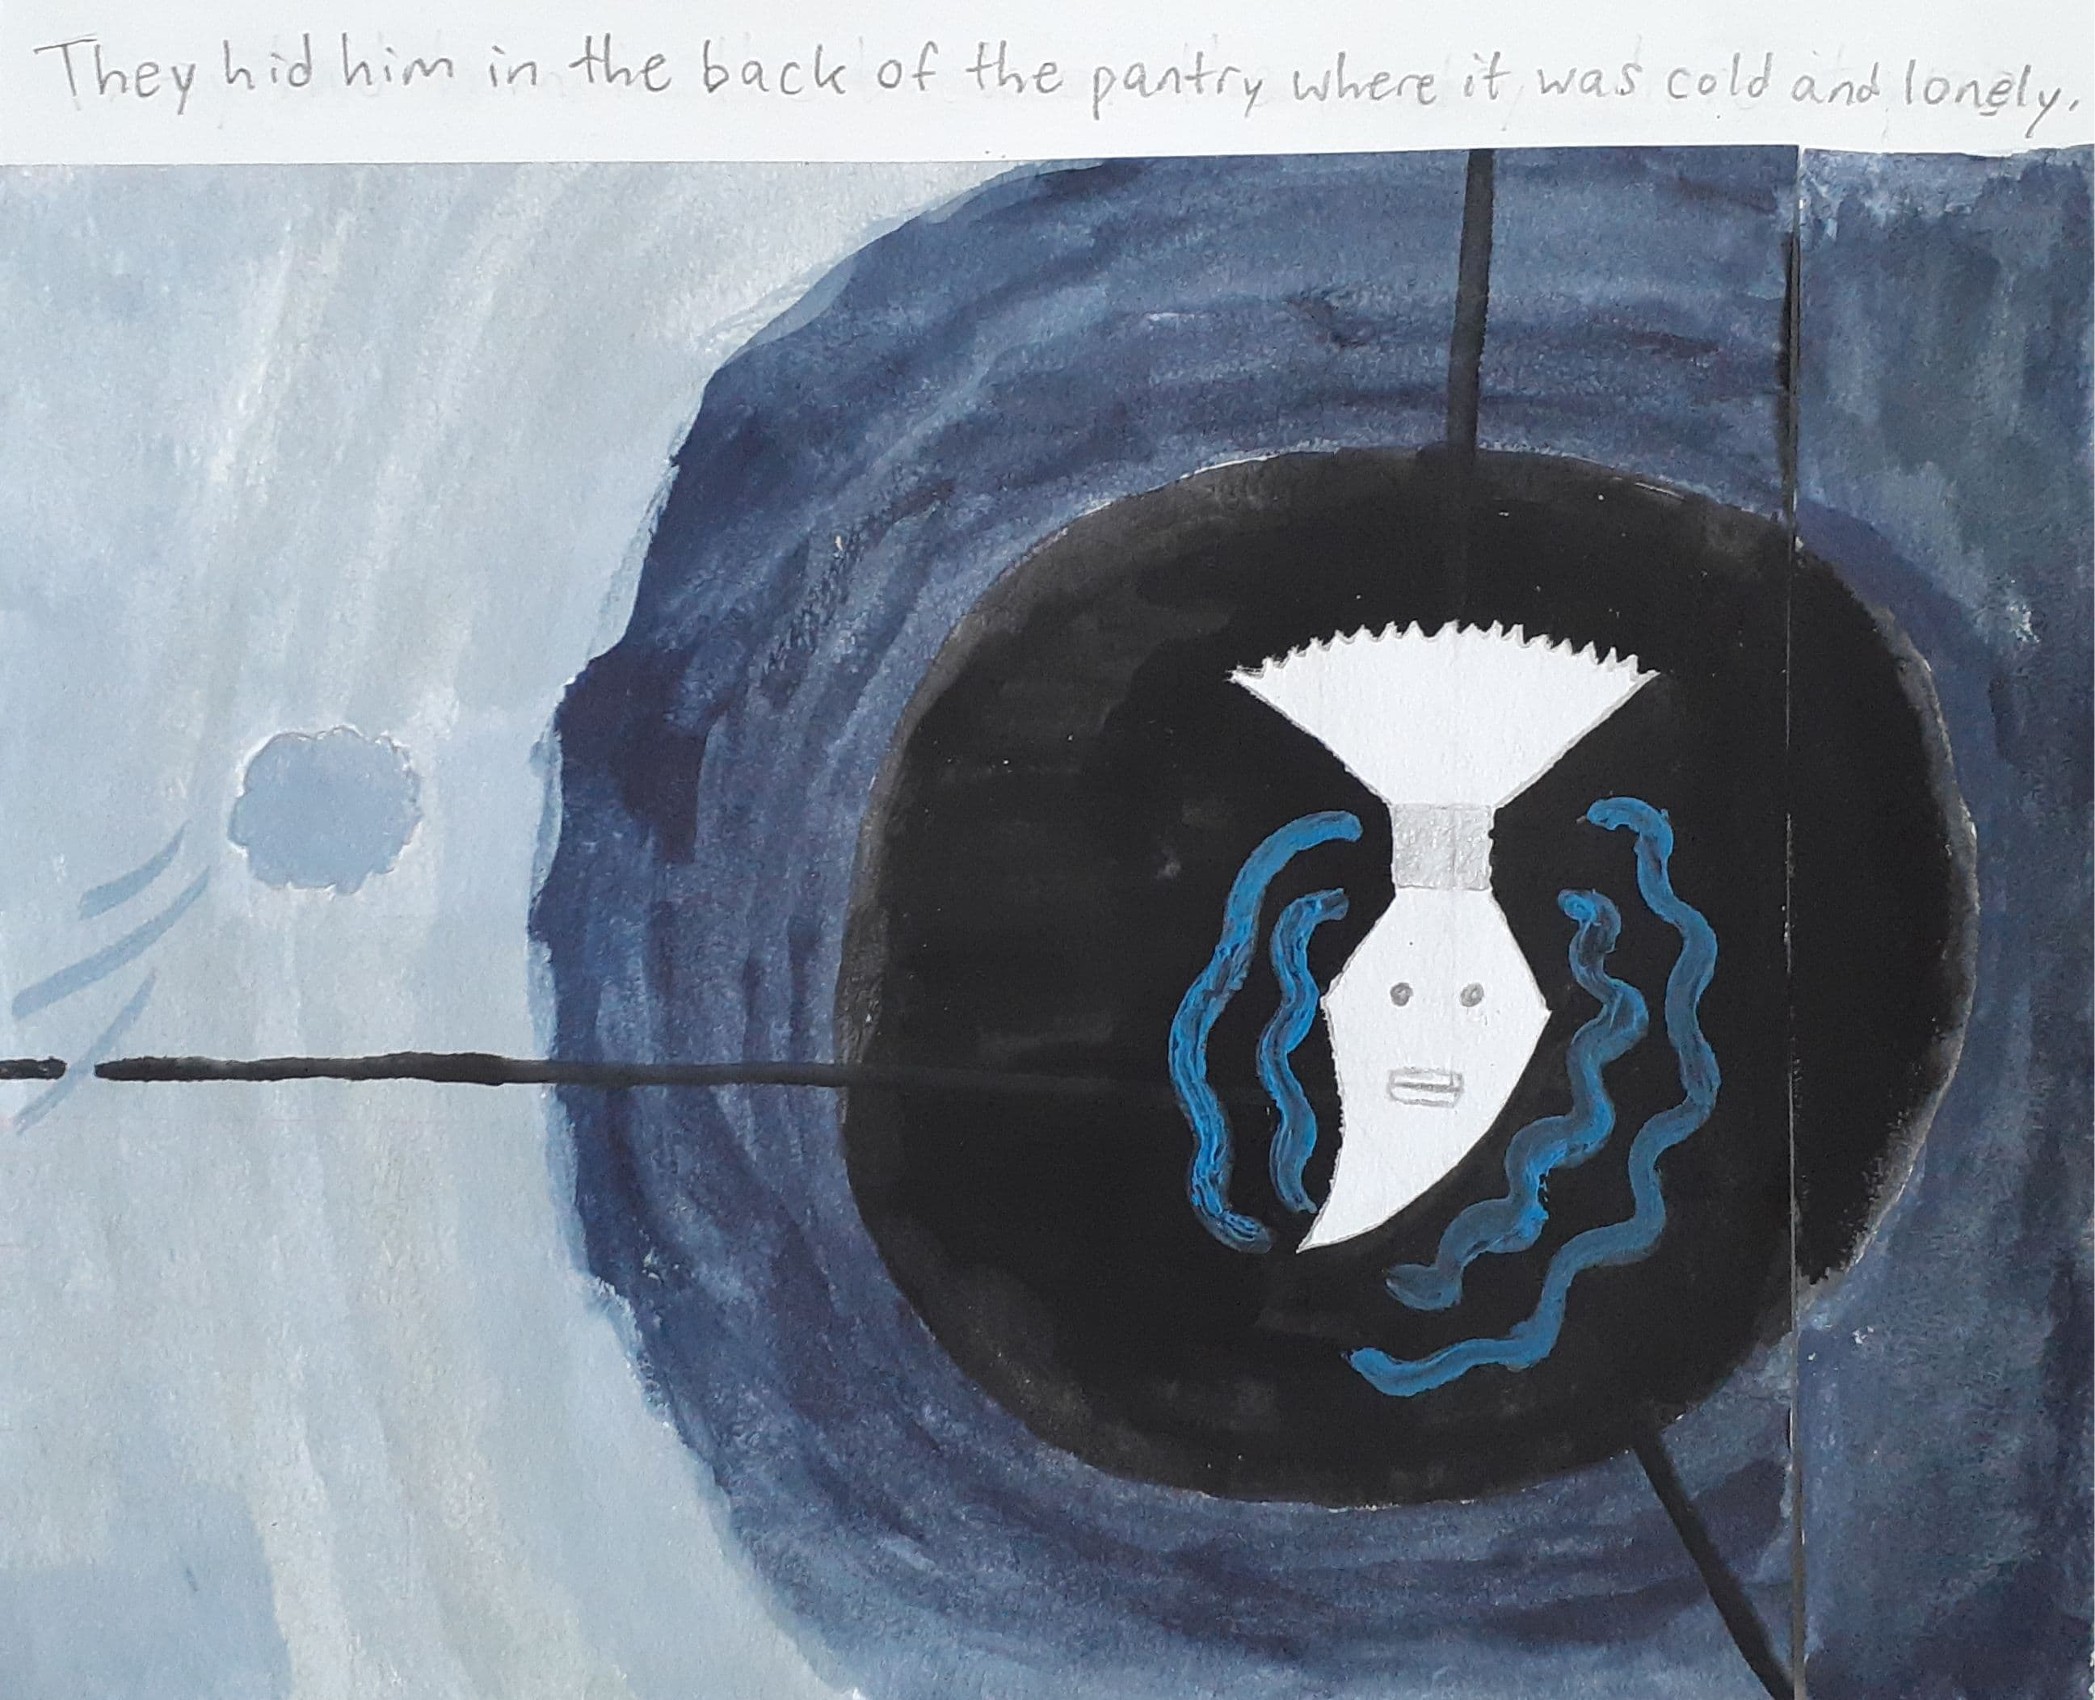 They hid him in the back of the pantry where it was cold and lonely.